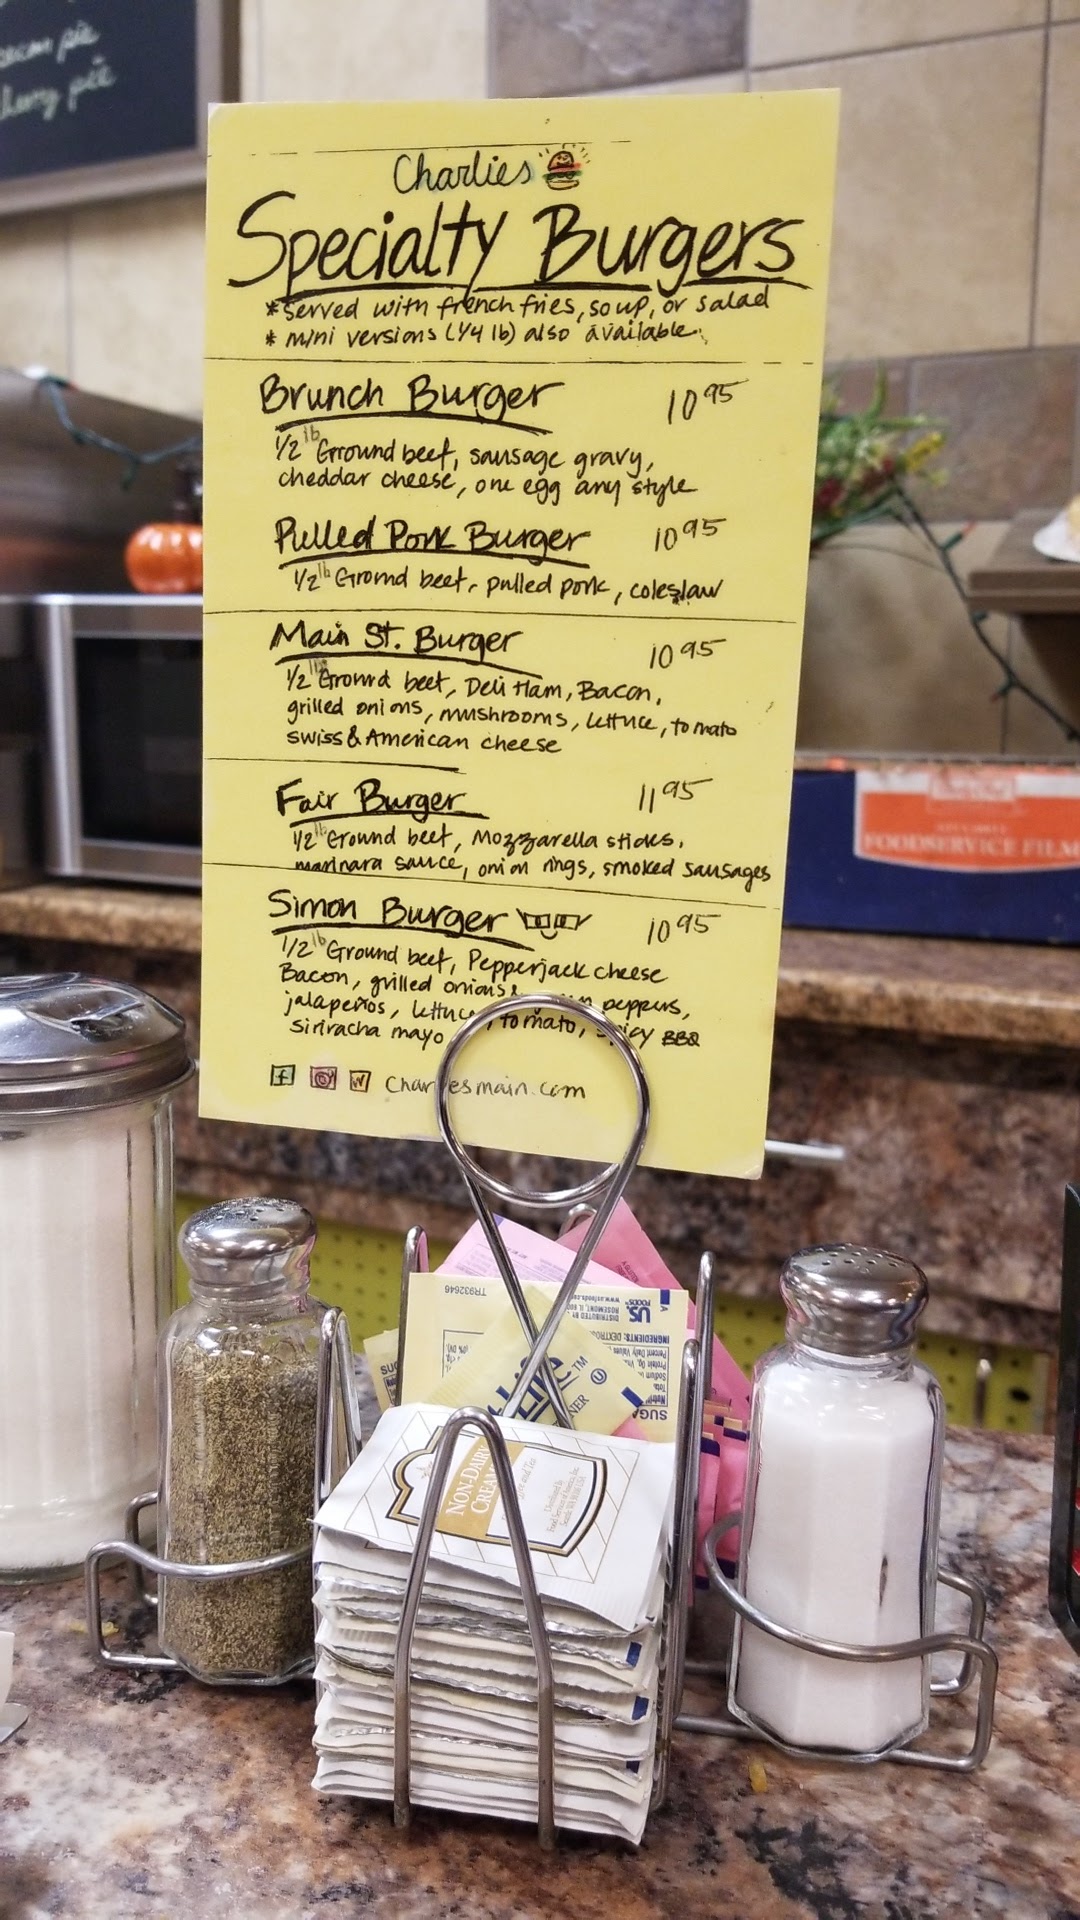 pie
cherry pie
Charlies
Specialty Burgers
*served with french fries, soup, or salad
* mini versions (1/4 lb) also available.
Brunch Burger 10 95
1/2 lb Ground beef, sausage gravy,
cheddar cheese, one egg any style
Pulled Pork Burger 10 95
1/2 lb Ground beef, pulled pork, coleslaw
Main St. Burger 10 95
1/2 lb Ground beef, Deli Ham, Bacon,
grilled onions, mushrooms, lettuce, tomato
swiss & American cheese
Fair Burger 11 95
1/2 lb Ground beef, Mozzarella sticks,
marinara sauce, onion rings, smoked sausages
Simon Burger 10 95
1/2 lb Ground beef, Pepperjack cheese
Bacon, grilled onions &
jalapeños, lettuce, tomato, spicy BBQ
peppers,
siriracha mayo
f Charliesmain.com
FOODSERVICE FILM
TR932646
US.
FOODS
www.usfoods.com
ROSEMONT, IL
DISTRIBUTED BY
INGREDIENTS: DEXTROSE
Percent Daily Values
SUGA
TM
NON-DAIRY
CREAM
Distributed by
Food Services of America, Inc.